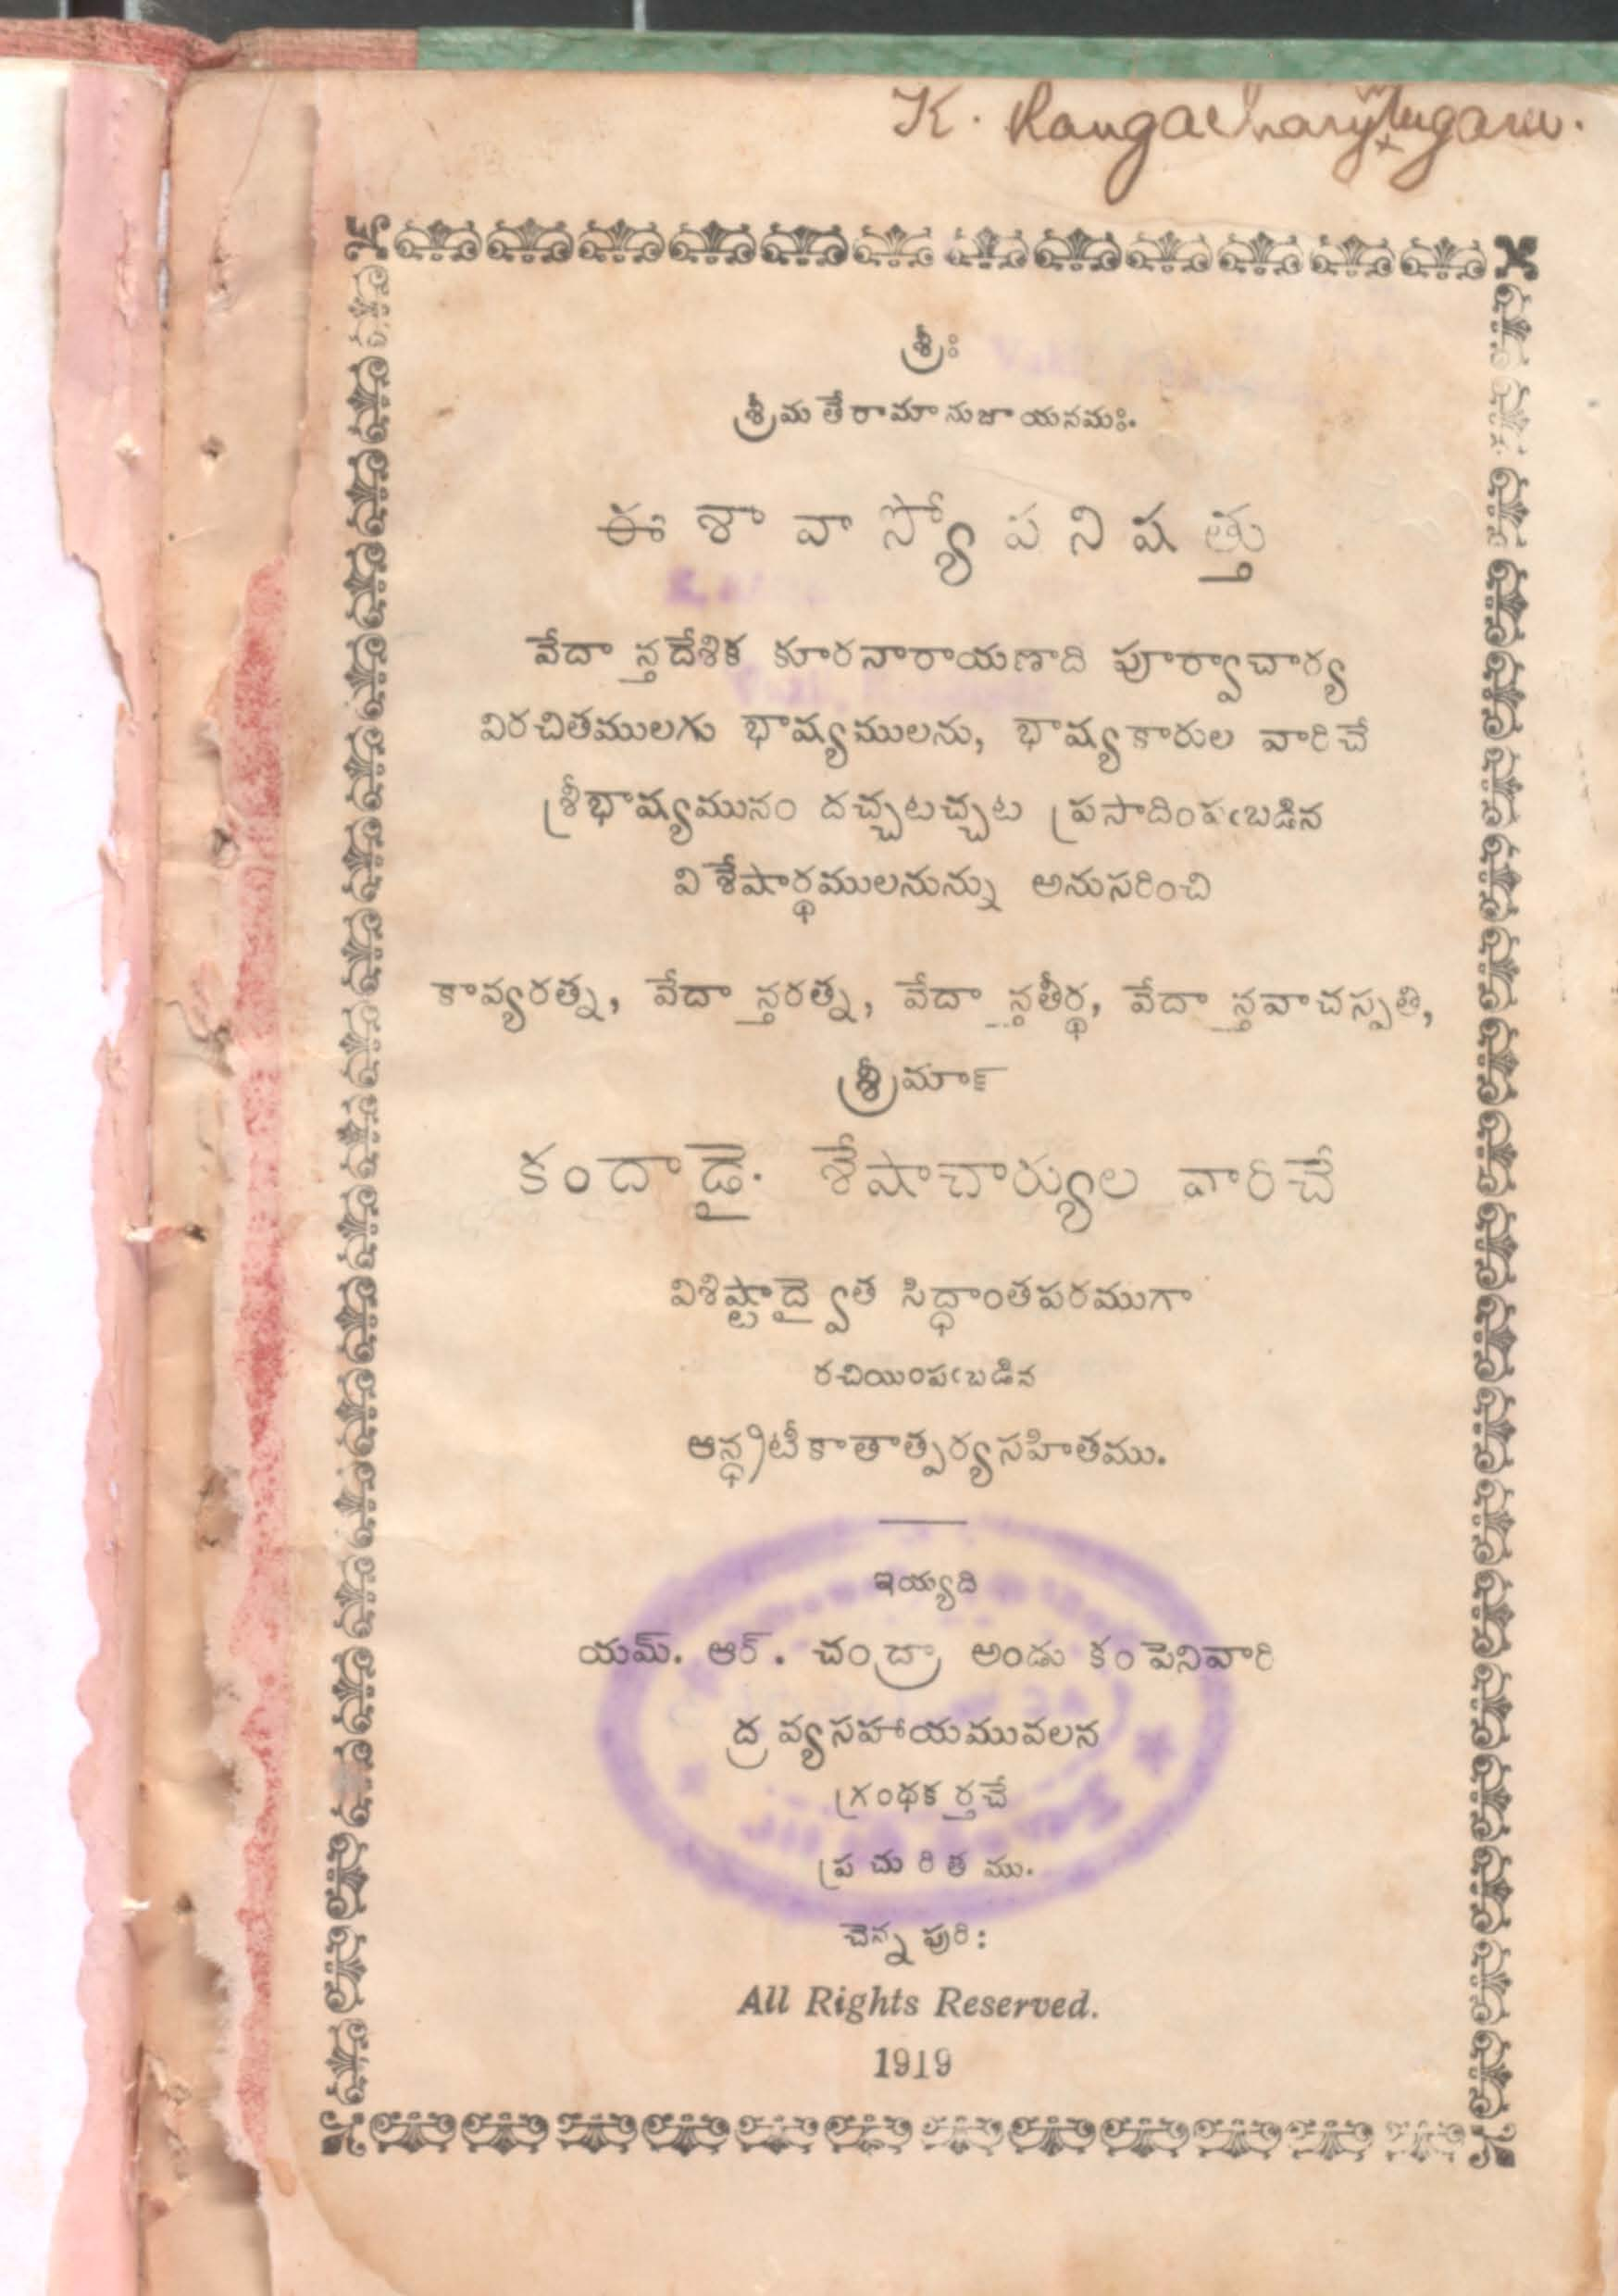 K. Rangacharyulugaru.
శ్రీః
శ్రీమతేరామానుజాయనమః.
ఈశావాస్యోపనిషత్తు
వేదాన్తదేశిక కూరనారాయణాది పూర్వాచార్య
విరచితములగు భాష్యములను, భాష్యకారుల వారిచే
శ్రీభాష్యమునం దచ్చటచ్చట ప్రసాదింపఁబడిన
విశేషార్థములనున్ను అనుసరించి
కావ్యరత్న, వేదాన్తరత్న, వేదాన్తతీర్థ, వేదాన్తవాచస్పతి,
శ్రీమాన్
కందాడై. శేషాచార్యుల వారిచే
విశిష్టాద్వైత సిద్ధాంతపరముగా
రచియింపఁబడిన
ఆన్ధ్రటీకాతాత్పర్యసహితము.
ఇయ్యది
యమ్. ఆర్. చంద్రా అండు కంపెనివారి
ద్రవ్యసహాయమువలన
గ్రంథకర్తచే
ప్రచురితము.
చెన్నపురి:
All Rights Reserved.
1919